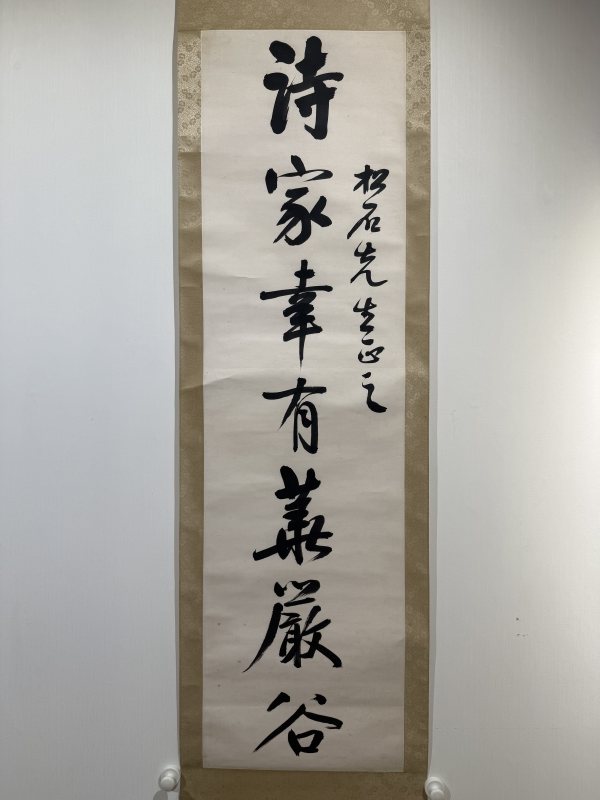 松石先生正之
詩家幸有華嚴谷